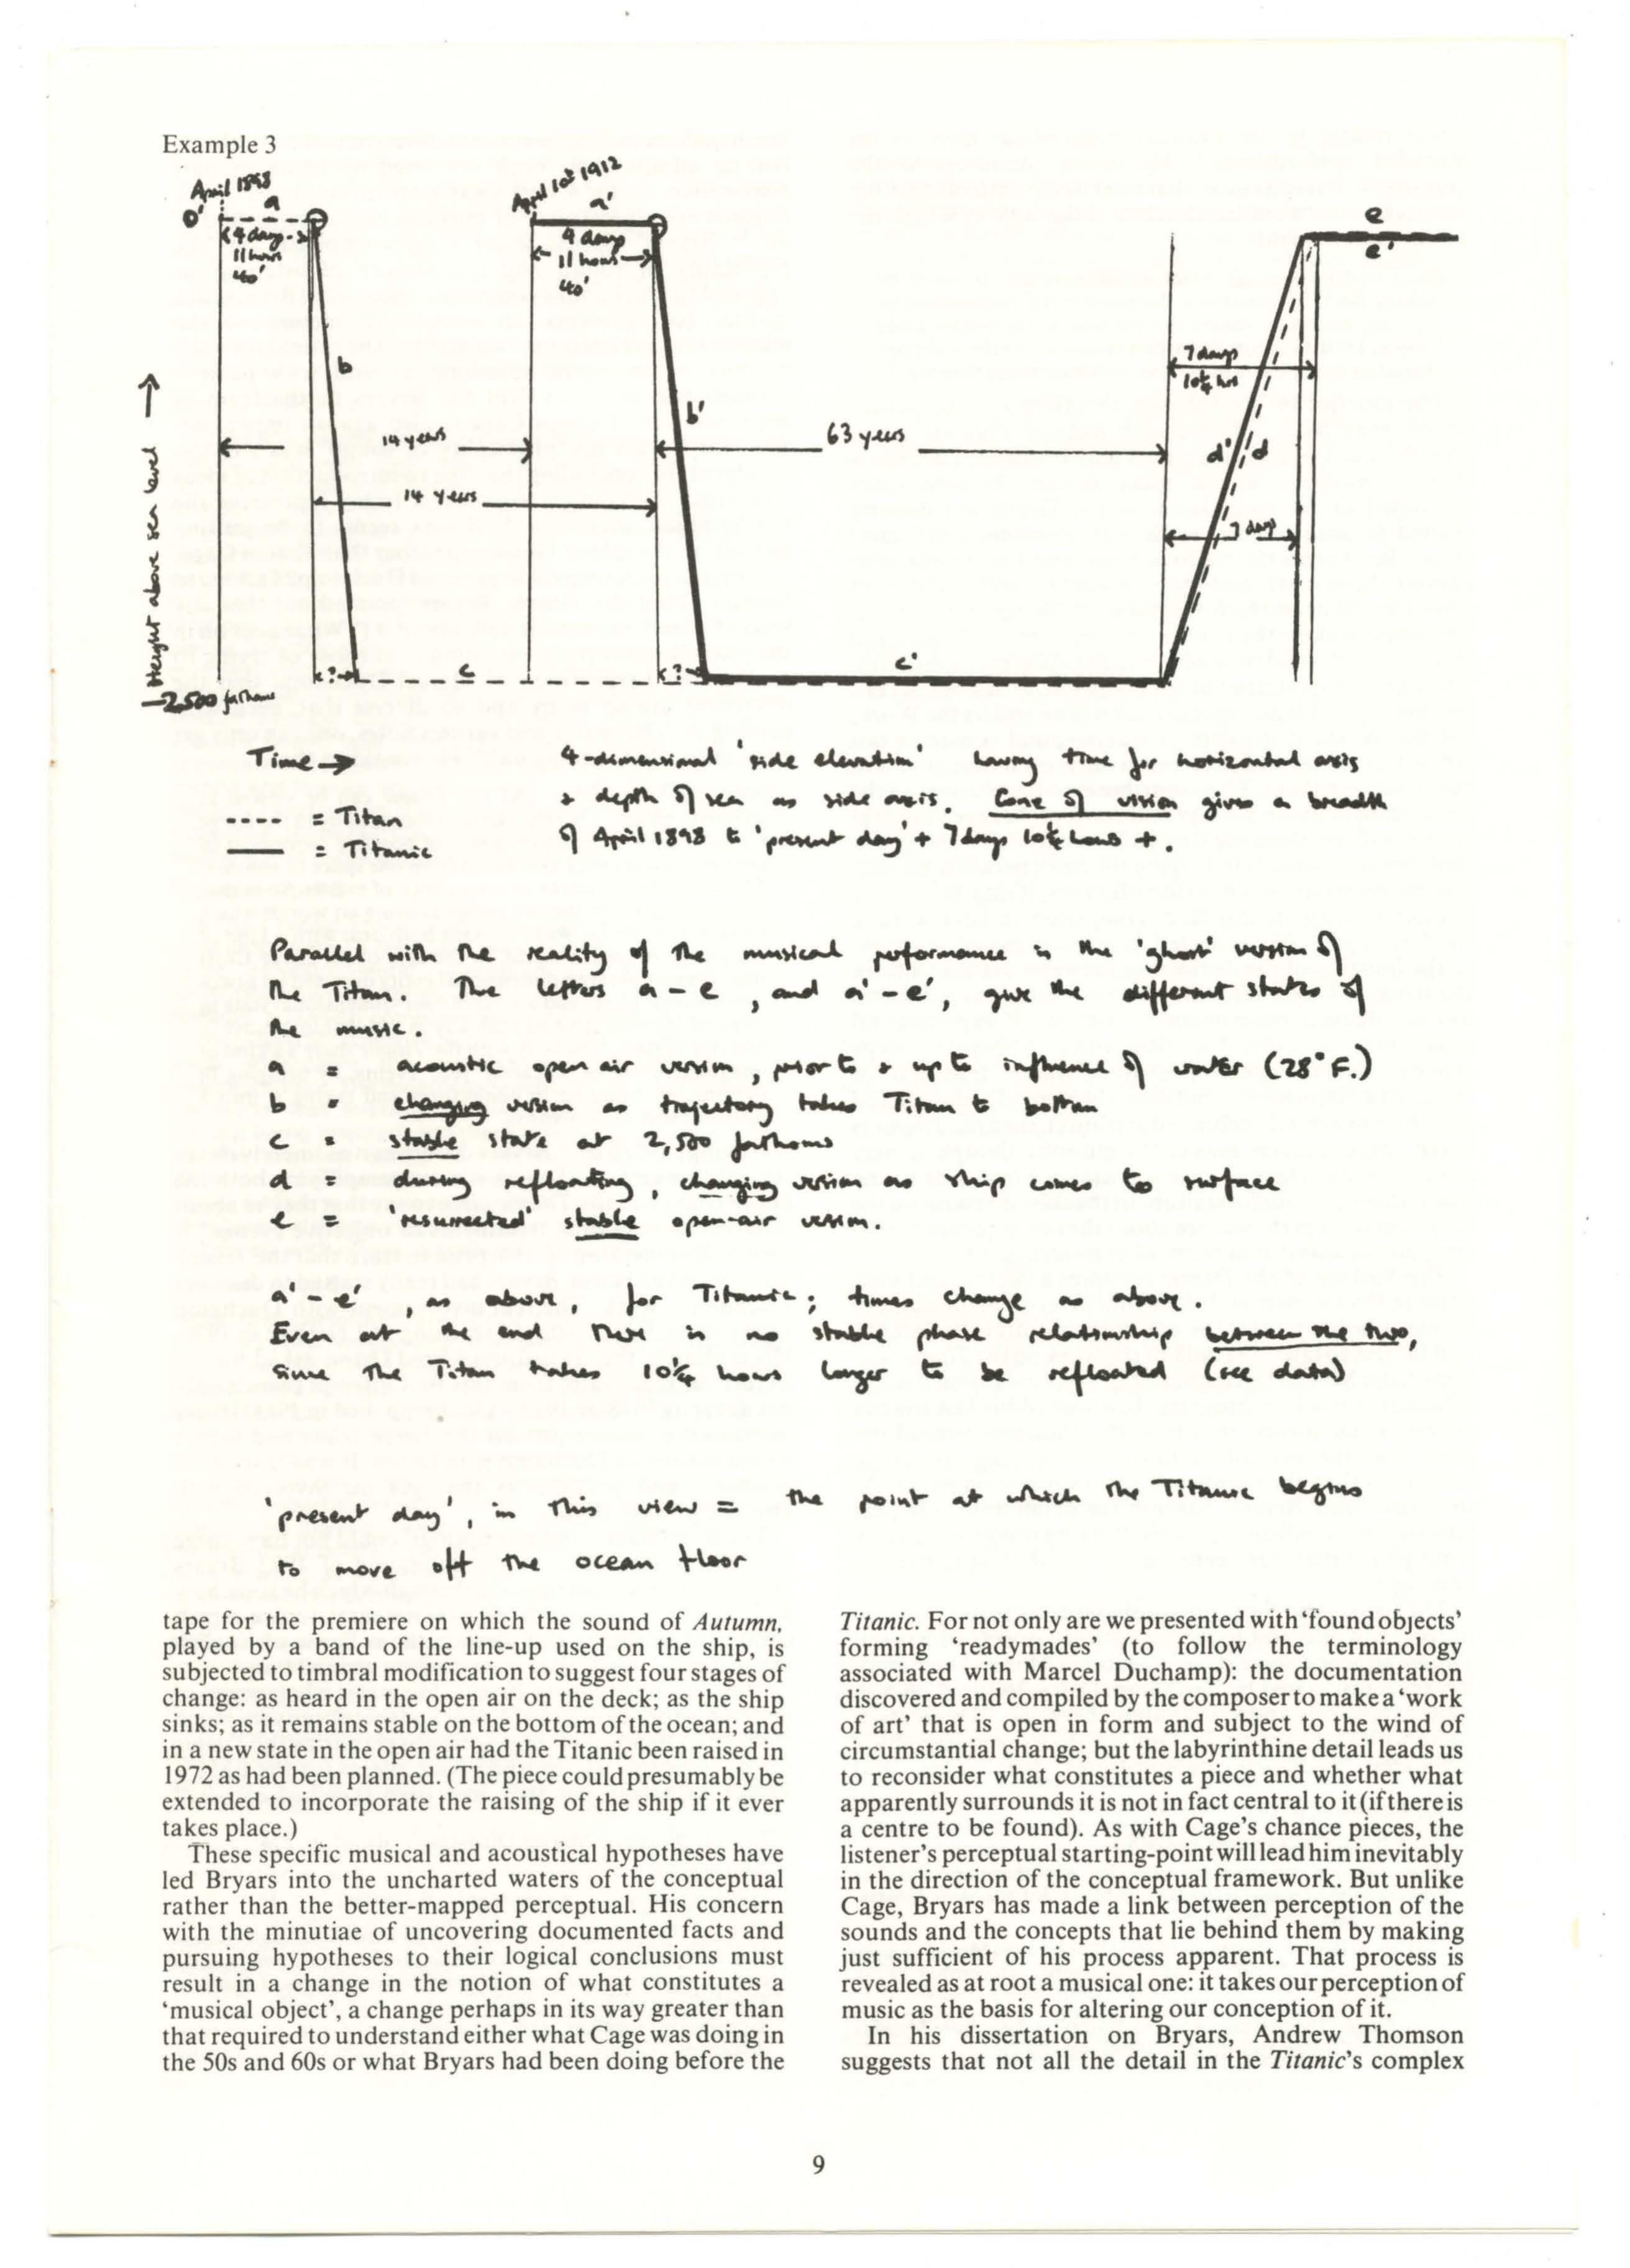 Example 3
April 1898
April 10th 1912
0'
a
a'
e
e'
4 days
11 hours
40'
4 days
11 hours
40'
7 days
10¼ hrs
b
b'
14 years
63 years
d'
d
14 years
7 days
Height above sea level
?
c
?
c'
-2,500 fathoms
Time →
4-dimensional 'side elevation' having time for horizontal axis
& depth of sea as side axis. Cone of vision gives a breadth
of April 1898 to 'present day' + 7 days 10¼ hours +.
---- = Titan
—— = Titanic
Parallel with the reality of the musical performance is the 'ghost' version of
the Titan. The letters a – e, and a' – e', give the different states of
the music.
a = acoustic open air version, prior to & up to influence of water (28° F.)
b = changing version as trajectory takes Titan to bottom
c = stable state at 2,500 fathoms
d = during refloating, changing version as ship comes to surface
e = 'resurrected' stable open-air version.
a' – e', as above, for Titanic; times change as above.
Even at the end there is no stable phase relationship between the two,
since the Titan takes 10¼ hours longer to be refloated (see data)
'present day', in this view = the point at which the Titanic begins
to move off the ocean floor
tape for the premiere on which the sound of Autumn,
played by a band of the line-up used on the ship, is
subjected to timbral modification to suggest four stages of
change: as heard in the open air on the deck; as the ship
sinks; as it remains stable on the bottom of the ocean; and
in a new state in the open air had the Titanic been raised in
1972 as had been planned. (The piece could presumably be
extended to incorporate the raising of the ship if it ever
takes place.)
These specific musical and acoustical hypotheses have
led Bryars into the uncharted waters of the conceptual
rather than the better-mapped perceptual. His concern
with the minutiae of uncovering documented facts and
pursuing hypotheses to their logical conclusions must
result in a change in the notion of what constitutes a
‘musical object’, a change perhaps in its way greater than
that required to understand either what Cage was doing in
the 50s and 60s or what Bryars had been doing before the
Titanic. For not only are we presented with ‘found objects’
forming ‘readymades’ (to follow the terminology
associated with Marcel Duchamp): the documentation
discovered and compiled by the composer to make a ‘work
of art’ that is open in form and subject to the wind of
circumstantial change; but the labyrinthine detail leads us
to reconsider what constitutes a piece and whether what
apparently surrounds it is not in fact central to it (if there is
a centre to be found). As with Cage’s chance pieces, the
listener’s perceptual starting-point will lead him inevitably
in the direction of the conceptual framework. But unlike
Cage, Bryars has made a link between perception of the
sounds and the concepts that lie behind them by making
just sufficient of his process apparent. That process is
revealed as at root a musical one: it takes our perception of
music as the basis for altering our conception of it.
In his dissertation on Bryars, Andrew Thomson
suggests that not all the detail in the Titanic’s complex
9